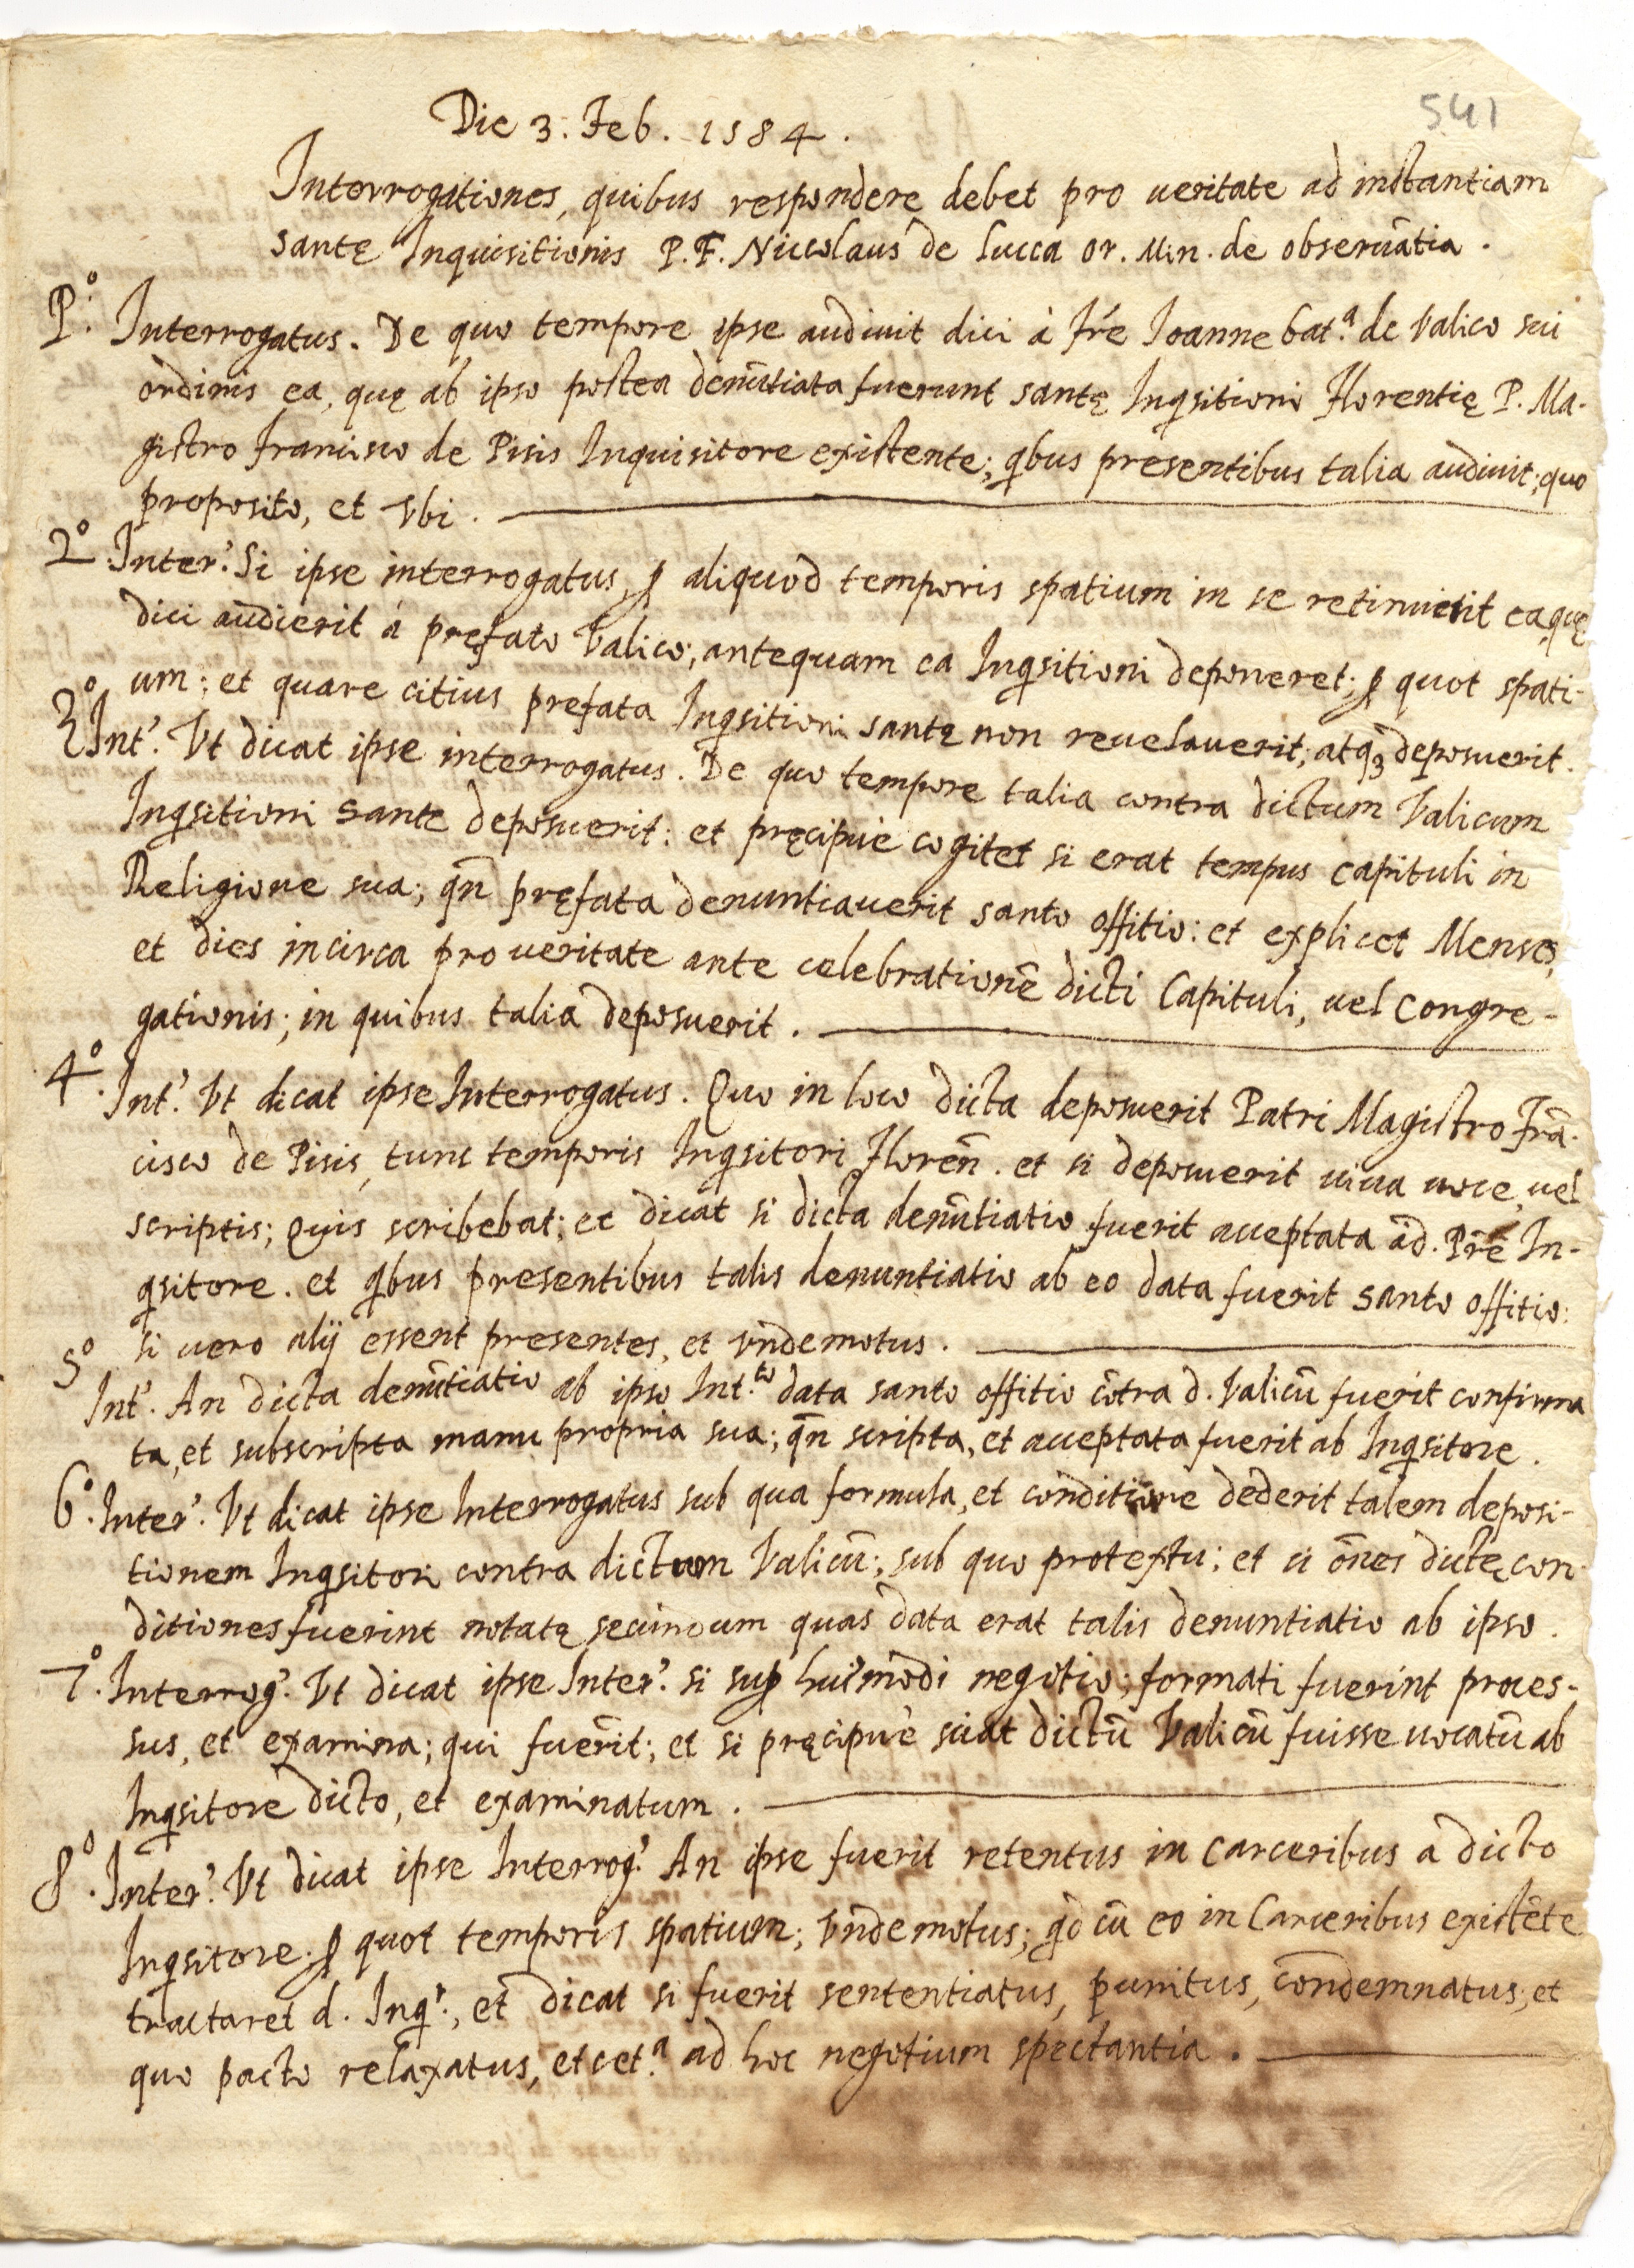 541
Die 3. Feb. 1584.
Interrogationes, quibus respondere debet pro ueritate ad instantiam
santę Inquisitionis P. F. Niccolaus de Lucca or. Min. de obseruātia.
P.º Interrogatus. De quo tempore ipse audiuit dici à Frē Joanne bat.ª de Valico sui
ordinis ea, quę ab ipso postea denūtiata fuerunt santę Inqsitioni Florentię P. Ma-
gistro francisco de Pisis Inquisitore existente; qbus presentibus talia audiuit; quo
proposito, et vbi.
2º. Inter.' Si ipse interrogatus, ꝑ aliquod temporis spatium in se retinuerit ea, quę
dici audierit à pręfato Valico; antequam ea Inqsitioni deponeret; ꝑ quot spati-
um; et quare citius prefata Inqsitioni santę non reuelauerit; atqꝫ deposuerit.
3º Int.' Vt dicat ipse interrogatus. De quo tempore talia contra dictum Valicum
Inqsitioni sante deposuerit: et pręcipuè cogitet si erat tempus capituli in
Religione sua; qn̄ pręfata denuntiauerit santo offitio: et explicet Menses,
et dies incirca pro ueritate ante celebrationē dicti Capituli, uel Congre-
gationis; in quibus talia deposuerit.
4º. Int.' Vt dicat ipse Interrogatus. Quo in loco dicta deposuerit Patri Magistro Frā-
cisco de Pisis, tunc temporis Inqsitori Floren̄. et si deposuerit uiua uoce, uel
scriptis; Quis scribebat; et dicat si dicta denūtiatio fuerit acceptata à d. Prē In-
qsitore. et qbus presentibus talis denuntiatio ab eo data fuerit santo offitio:
si uero alij essent presentes, et vn̄demotus.
5º Int.' An dicta denūtiatio ab ipso Int.to data santo offitio cōtra d. Valicū fuerit confirma
ta, et subscripta manu propria sua; qn̄ scripta, et acceptata fuerit ab Inqsitore.
6º. Inter.' Vt dicat ipse Interrogatus sub qua formula, et conditione dederit talem deposi-
tionem Inqsitori contra dictum Valicū; sub quo protextu; et si ōnes dictę con-
ditiones fuerint notatę secundum quas data erat talis denuntiatio ab ipso.
7º. Interrog.' Vt dicat ipse Inter.' si suꝑ hui'modi negotio; formati fuerint proces-
sus, et examina; qui fuerīt; et si pręcipuè sciat dictū Valicū fuisse uocatū ab
Inqsitore dicto, et examinatum.
8º. Inter.' Vt dicat ipse Interrog.' An ipse fuerit retentus in Carceribus a dicto
Inqsitore; ꝑ quot temporis spatium; vn̄demotus; qd cū eo in Carceribus existēte
tractaret d. Inq.r, et dicat si fuerit sententiatus, punitus, condemnatus; et
quo pacto relaxatus, et cet.ª ad hoc negotium spectantia.